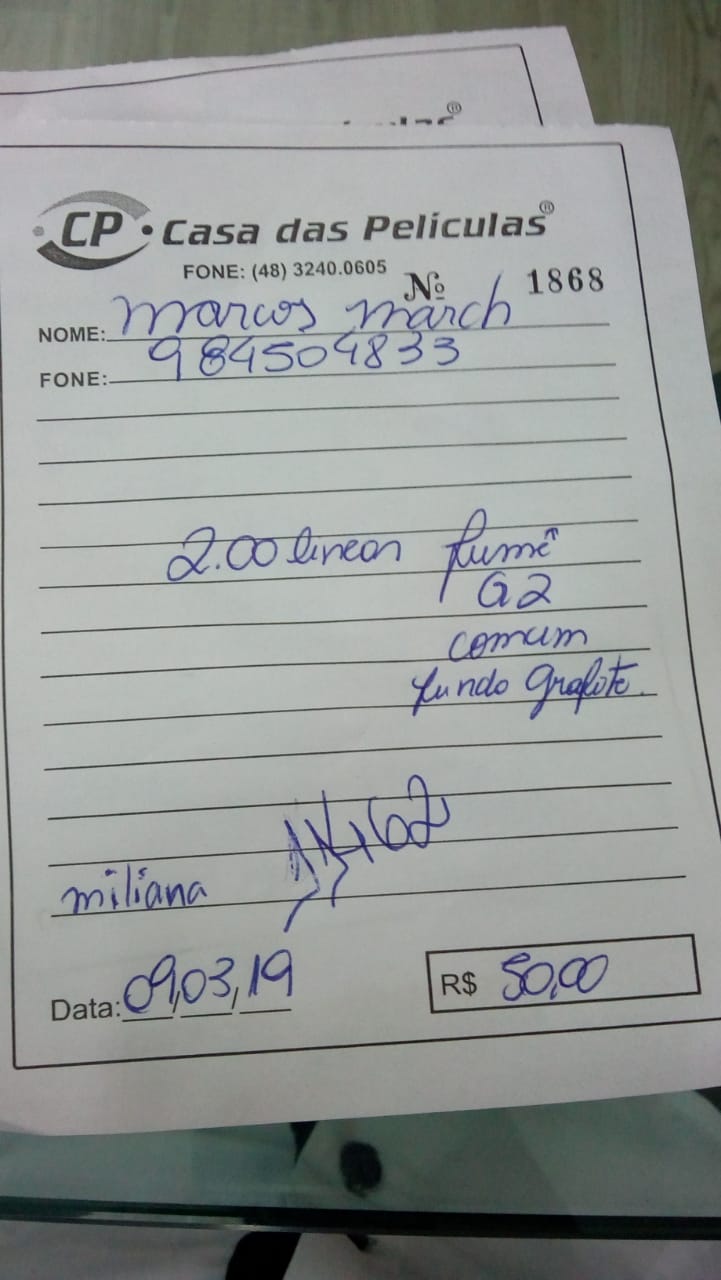 CP · Casa das Películas®
FONE: (48) 3240.0605
Nº 1868
NOME: Marcos March
FONE: 984504833
2.00 linear fumê
G2
comum
fundo grafite.
miliana
Data: 09,03,19
R$ 50,00